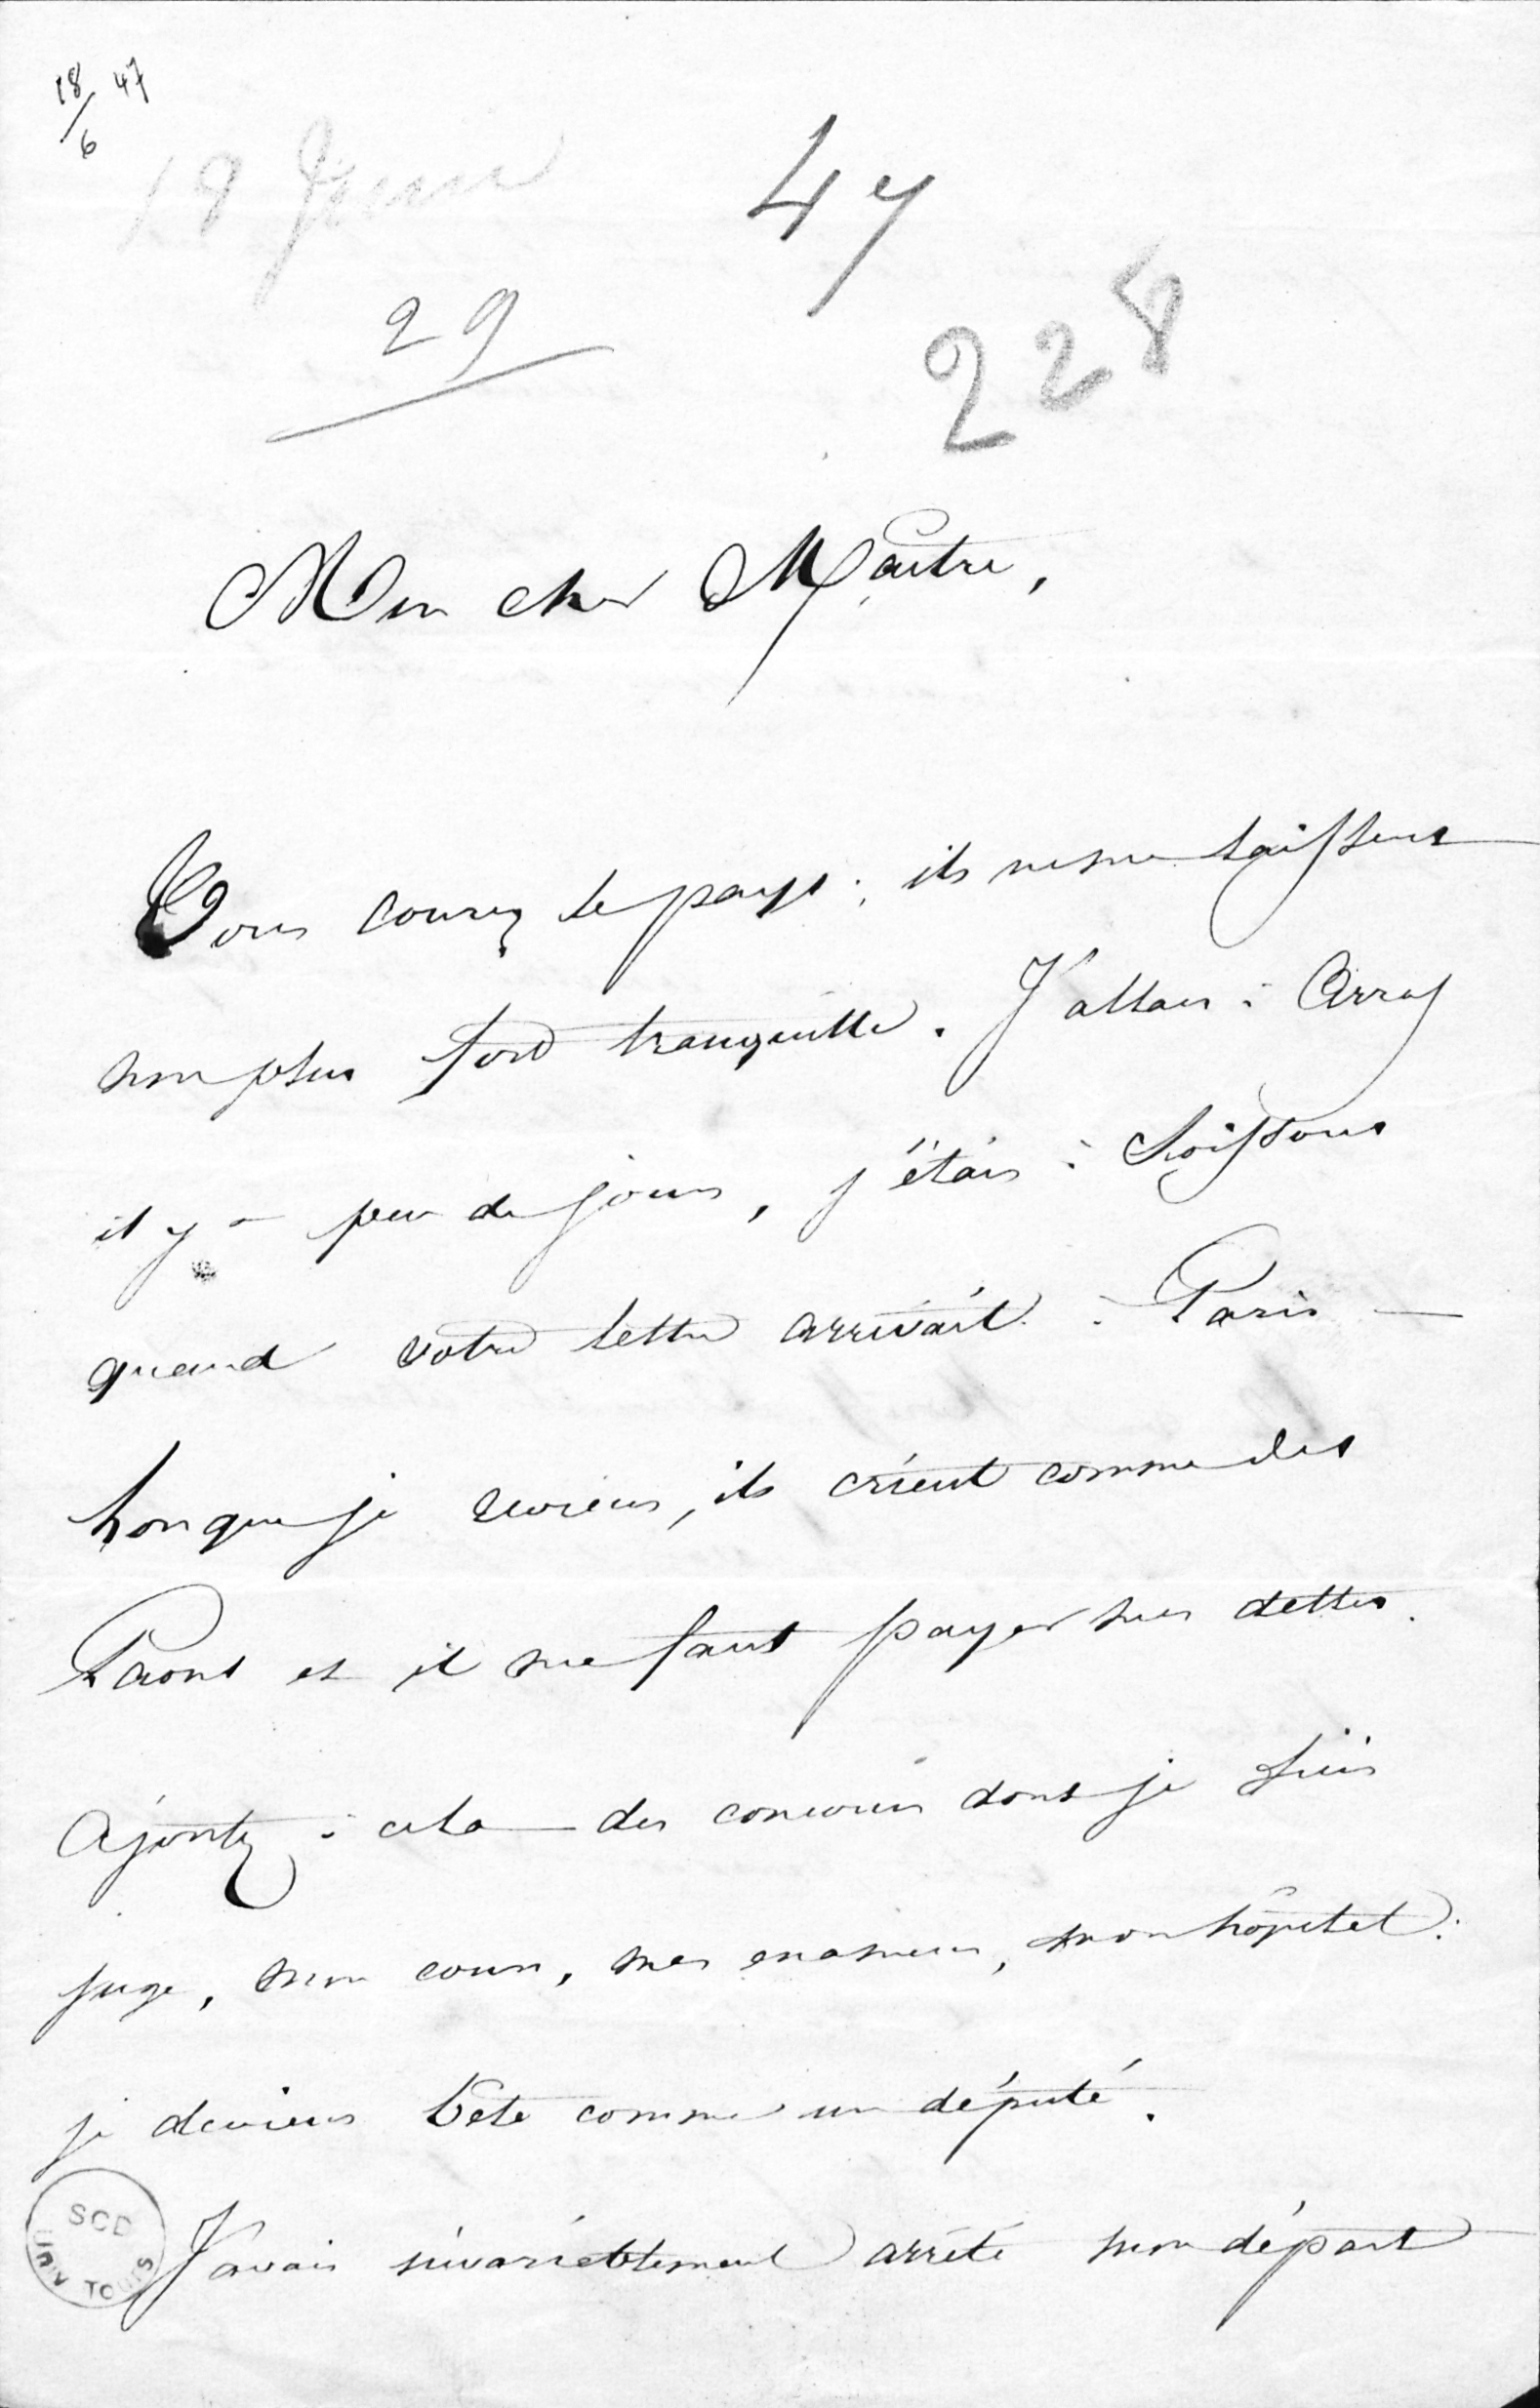 18/6 47
18 Juin
47
29
228
Mon cher Maître,
Vous courez le pays; ils ne me laissent
non plus fort tranquille. J'allais à Arras
il y a peu de jours, j'étais à Soissons
quand votre lettre arrivait à Paris —
Lorsque je reviens, ils crient comme des
Paons et il me faut payer mes dettes.
Ajoutez à cela des concours dont je suis
juge, mon cours, mes examens, mon hôpital:
je deviens bete comme un député.
J'avais invariablement arrêté mon départ
SCD
UNIV TOURS